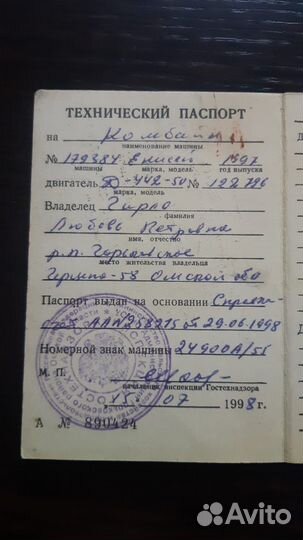 ТЕХНИЧЕСКИЙ ПАСПОРТ
на Комбайн
наименование машины
№ 179384 Енисей 1997
машины марка, модель год выпуска
двигатель Д-442-50 № 122796
марка, модель
Владелец Гирло
фамилия
Любовь Петровна
имя, отчество
р.п. Горьковское
место жительства владельца
Омской обл
Паспорт выдан на основании
от 29.06.1998
Номерной знак машины 2490ОА/55
М. П.
начальник инспекции Гостехнадзора
15 07 1998 г.
А № 890424
Avito